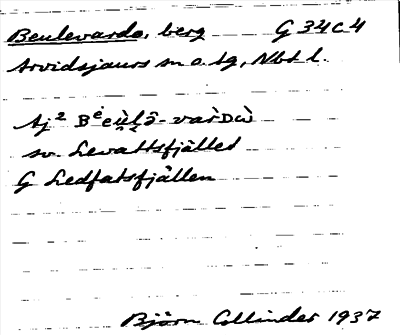 Beulevardo, berg G 34 C 4
Arvidsjaurs sn o. tg, Nbt l.
Aj² Bėeùlɔ̄-varDù
sv. Levattsfjället
G Ledfatsfjällen
Björn Collinder 1937